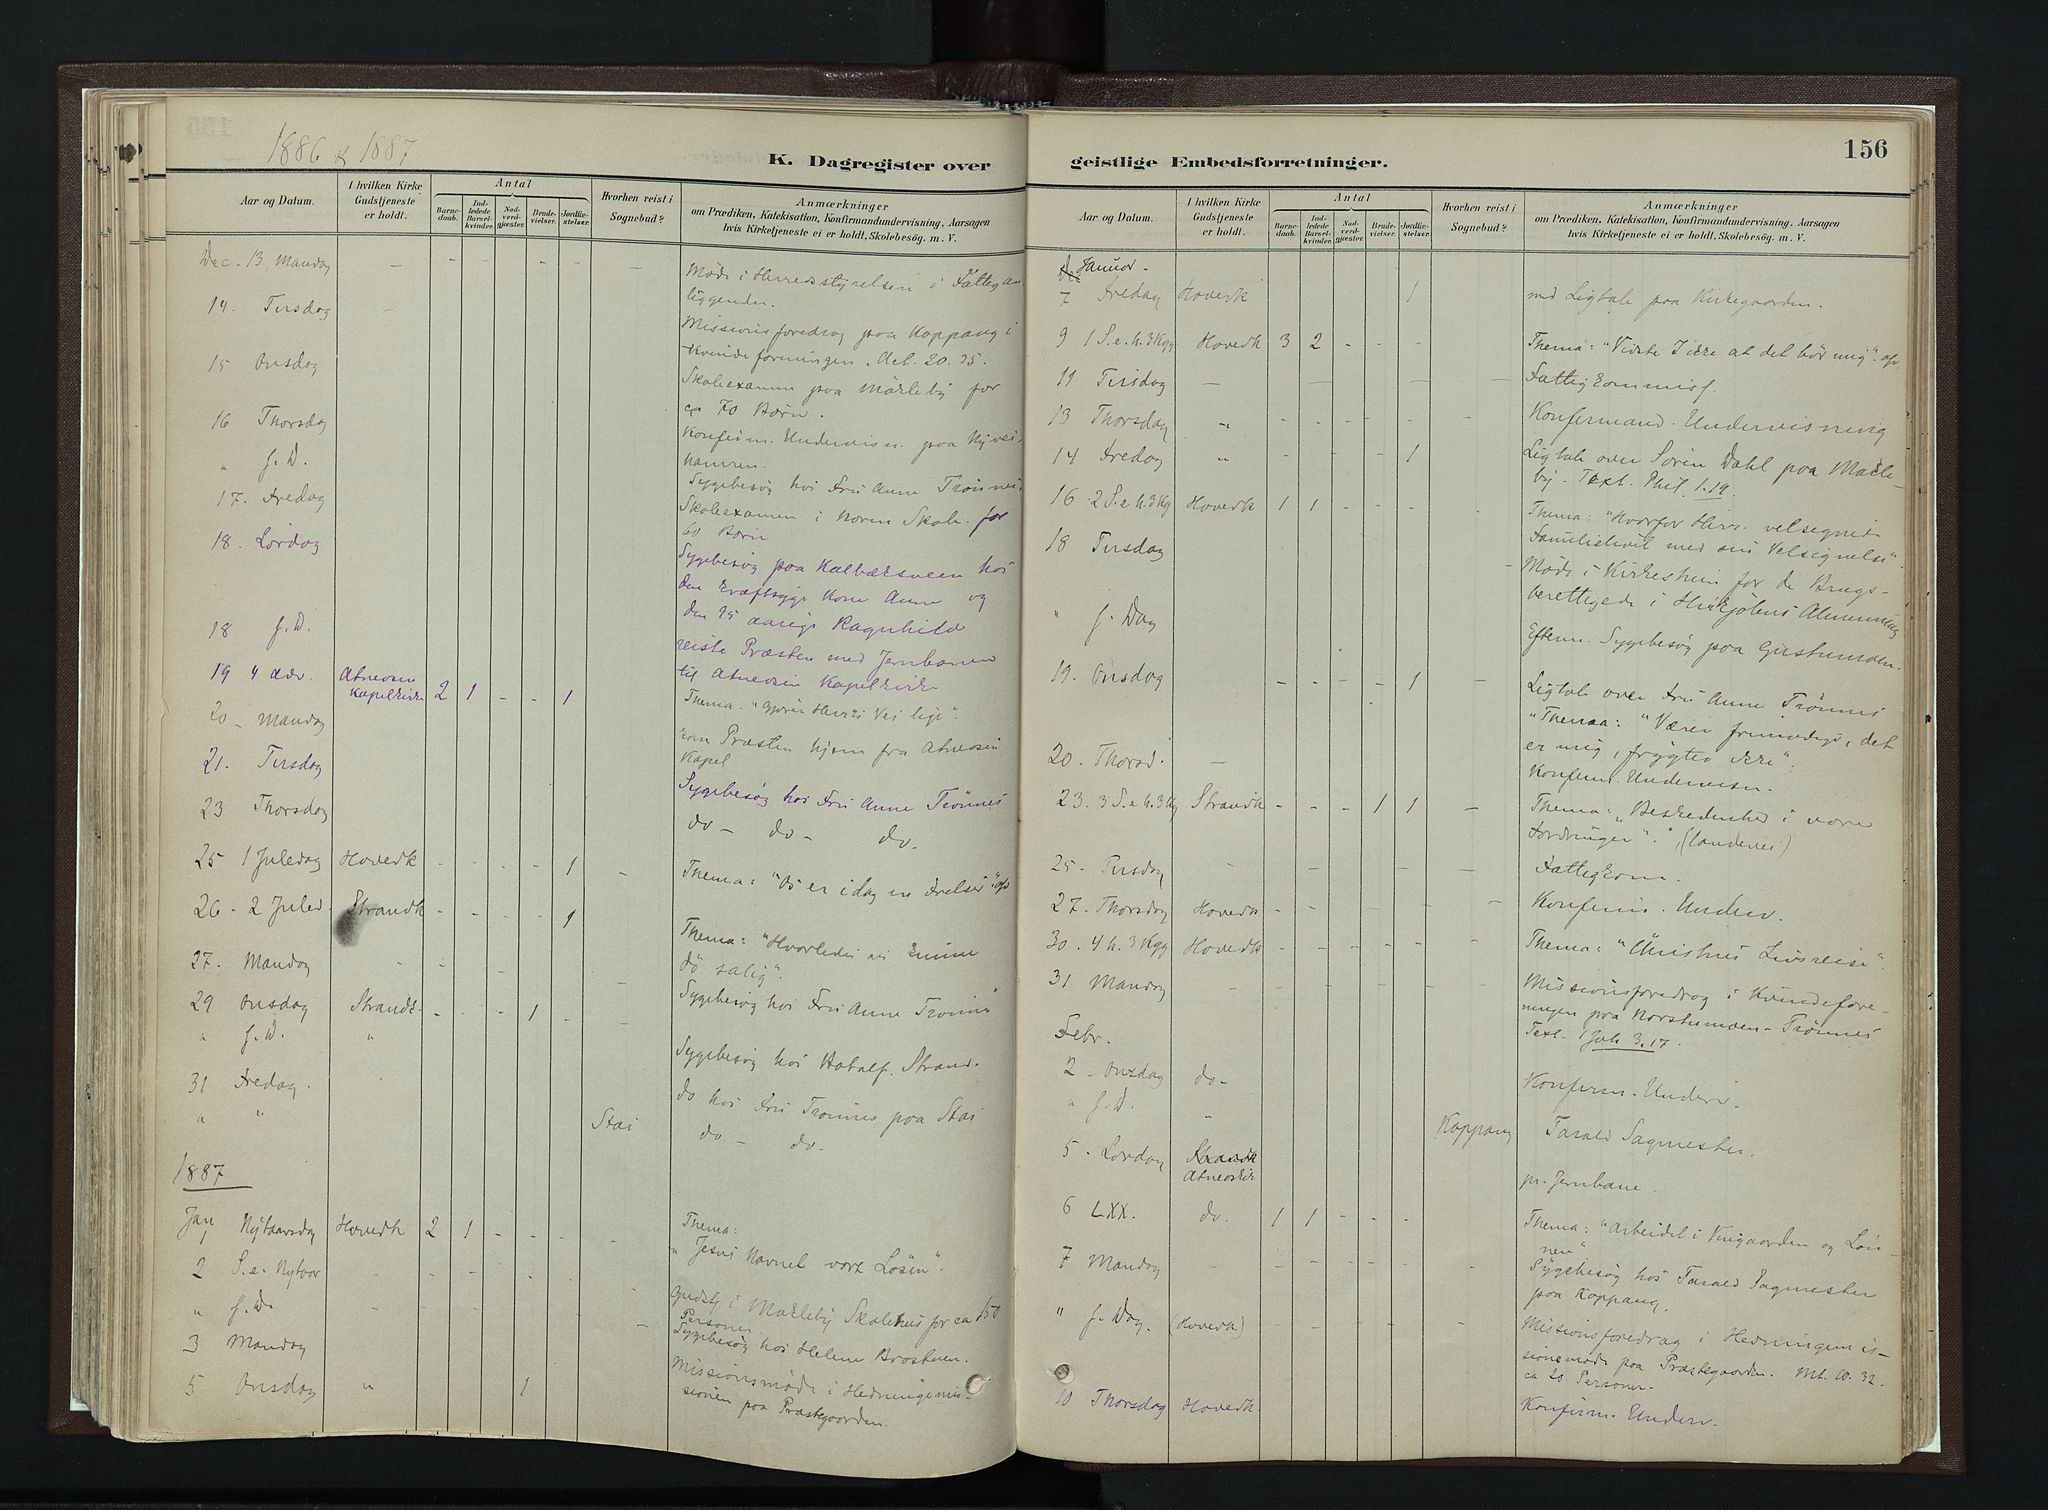 1886 & 1887
K. Dagregister over
Aar og Datum.
I hvilken Kirke Gudstjeneste er holdt.
Antal
Barnedaab.
Indledede Barselkvinder.
Nadverdgjester.
Brudevielser.
Jordfæstelser.
Hvorhen reist i Sognebud?
Anmærkninger
om Prædiken, Katekisation, Konfirmandundervisning, Aarsagen
hvis Kirketjeneste ei er holdt. Skolebesög. m. V.
Dec. 13, Mandag - - - - - - -
Møde i Herredsstyrelsen i Fattigan-
liggender.
14. Tirsdag -
Missionsforedrag paa Koppang i
Kvindeforeningen. Act. 20. 35.
15 Onsdag
Skoleexamen paa Mælleby for
ca 70 Børn.
16 Thorsdag
Konfirm. Undervisn. paa
" s. D.
Sygebesøg hos Frú Anne Trønnes
17. Fredag
Skoleexamen i Skole. for
60 Børn
18. Lørdag
Sygebesøg paa Kalbæksveen hos
den kræftsyge Kone Anne og
den 95 aarige Ragnhild
18 s. D.
reiste Præsten med Jernbanen
til Atneosen Kapelkirke
19 4 Adv. Atneosen Kapelkirke 2 1 - - 1
Thema. "Gjører Herrens Vei lige".
20 - Mandag
kom Præsten hjem fra Atneosen
Kapel
21. Tirsdag
Sygebesøg hos Frú Anne Trønnes
23 Thorsdag
do - do - do.
25 1 Juledag Hovedk - - - - 1 -
Thema: "Os er idag en Frelser" &
26 - 2 Juled. Strandk - - - - 1
Thema: "Hvorledes vi kunne
dø salig".
27. Mandag - - - - -
Sygebesøg hos Frú Anne Trønnes
29 Onsdag Strands- - - - 1 - -
" s. D. "
Sygebesøg hos Strand.
31 Fredag.
do hos Frú Trønnes paa Stai
" " Stai
do - do.
1887
Jan
1 Nytaarsdag Hovedk 2 1 - - - -
Thema:
"Jesus Navnet vort Løsen".
2 S. e. Nytaar - - - - - -
Gudstj i Mælleby Skolehus for ca 150
Personer
" s. D. - - - - - - -
Sygebesøg hos Helene Brostuen.
3 Mandag
Missionsmøde i Hedningemis-
sionen paa Præstegaarden.
5 Onsdag " 1
geistlige Embedsforretninger.
156
Aar og Datum.
I hvilken Kirke Gudstjeneste er holdt.
Antal
Barnedaab.
Indledede Barselkvinder.
Nadverdgjester.
Brudevielser.
Jordfæstelser.
Hvorhen reist i Sognebud?
Anmærkninger
om Prædiken, Katekisation, Konfirmandundervisning, Aarsagen
hvis Kirketjeneste ei er holdt. Skolebesög. m. V.
Januar.
7 Fredag Hovedk 1
med Ligtale paa Kirkegaarden.
9 1 S. e. h. 3 Kgg Hovedk 3 2 - - -
Thema: "Vidste I ikke at det bør mig".
11 Tirsdag - - - - -
Fattigkommiss.
13 Thorsdag " - - - - - -
Konfermand. Undervisning
14 Fredag " - - - - 1
Ligtale over Søren Dahl paa Mælle-
by. Text. Phil. 1.19.
16 2 S. e. h. 3 Kg Hovedk 1 1 - - -
Thema: "Hvorfor Herren velsigned
Familielivet med sin Velsignelse".
18 Tirsdag -
Møde i Kirkestuen for de Brugs-
berettigede i Almenning
" s. Dag
Efterm. Sygebesøg paa
19. Onsdag - - - - 1 -
Ligtale over Frú Anne Trønnes
"Themaa: "Værer frimodige, det
er mig, frygter ikke".
20 - Thorsd. -
Konferm. Undervisn.
23. 3 S. e h. 3 Kg Strandk - - - 1 1 -
Thema: "Beskedenhed i vore
Fordringer".
25 - Tirsdag - - - - -
Fattigkom.
27. Thorsdag Hovedk - - - - - -
Konferm. Underv.
30. 4 h. 3 Kgg Hovedk - - - - - -
Thema: "Christus Livsreise".
31 Mandag - - - - - - -
Missionsforedrag i Kvindefore-
ningen paa Norstumoen - Trønnes
Text. 1 Joh 3.17.
Febr.
2 - Onsdag do -
Konferm. Underv.
" s. D. " Koppang
Tarald Sagmester.
5 - Lørdag Atneosk
pr. Jernbane
6 LXX. do. 1 1 - - -
Thema: "Arbeidet i Viingaarden og Løn-
nen"
7 Mandag - - - - - - -
Sygebesøg hos Tarald Sagmester
paa Koppang.
" s. Dag. (Hovedk) - - - - - -
Missionsforedrag i Hedningemis-
sionsmøde paa Præstegaarden. Mt. 10. 32 -
ca 20 Personer.
10 Thorsdag Hovedk.
Konferm. Underv.